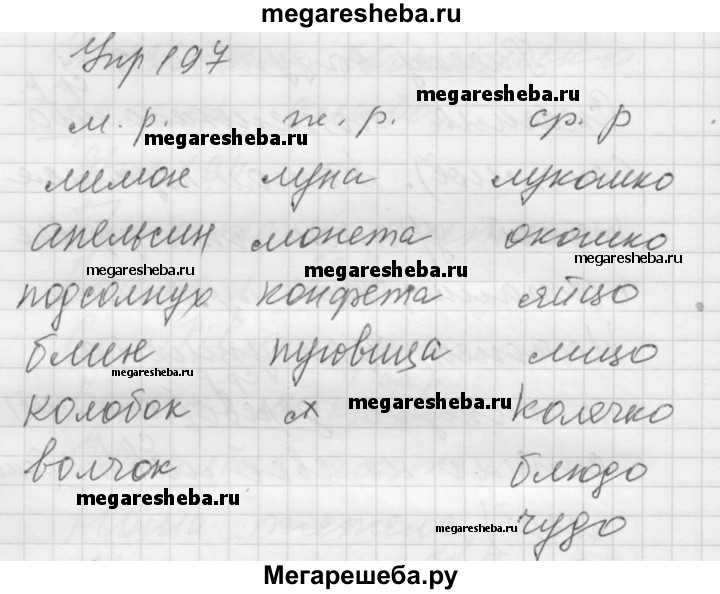 megaresheba.ru
Упр 197
megaresheba.ru
м. р. ж. р. ср. р
megaresheba.ru
лимон луна лукошко
апельсин монета окошко
megaresheba.ru megaresheba.ru megaresheba.ru
подсолнух конфета яйцо
блин пуговица лицо
megaresheba.ru
колобок megaresheba.ru колечко
волчок блюдо
megaresheba.ru
megaresheba.ru чудо
Мегарешеба.ру